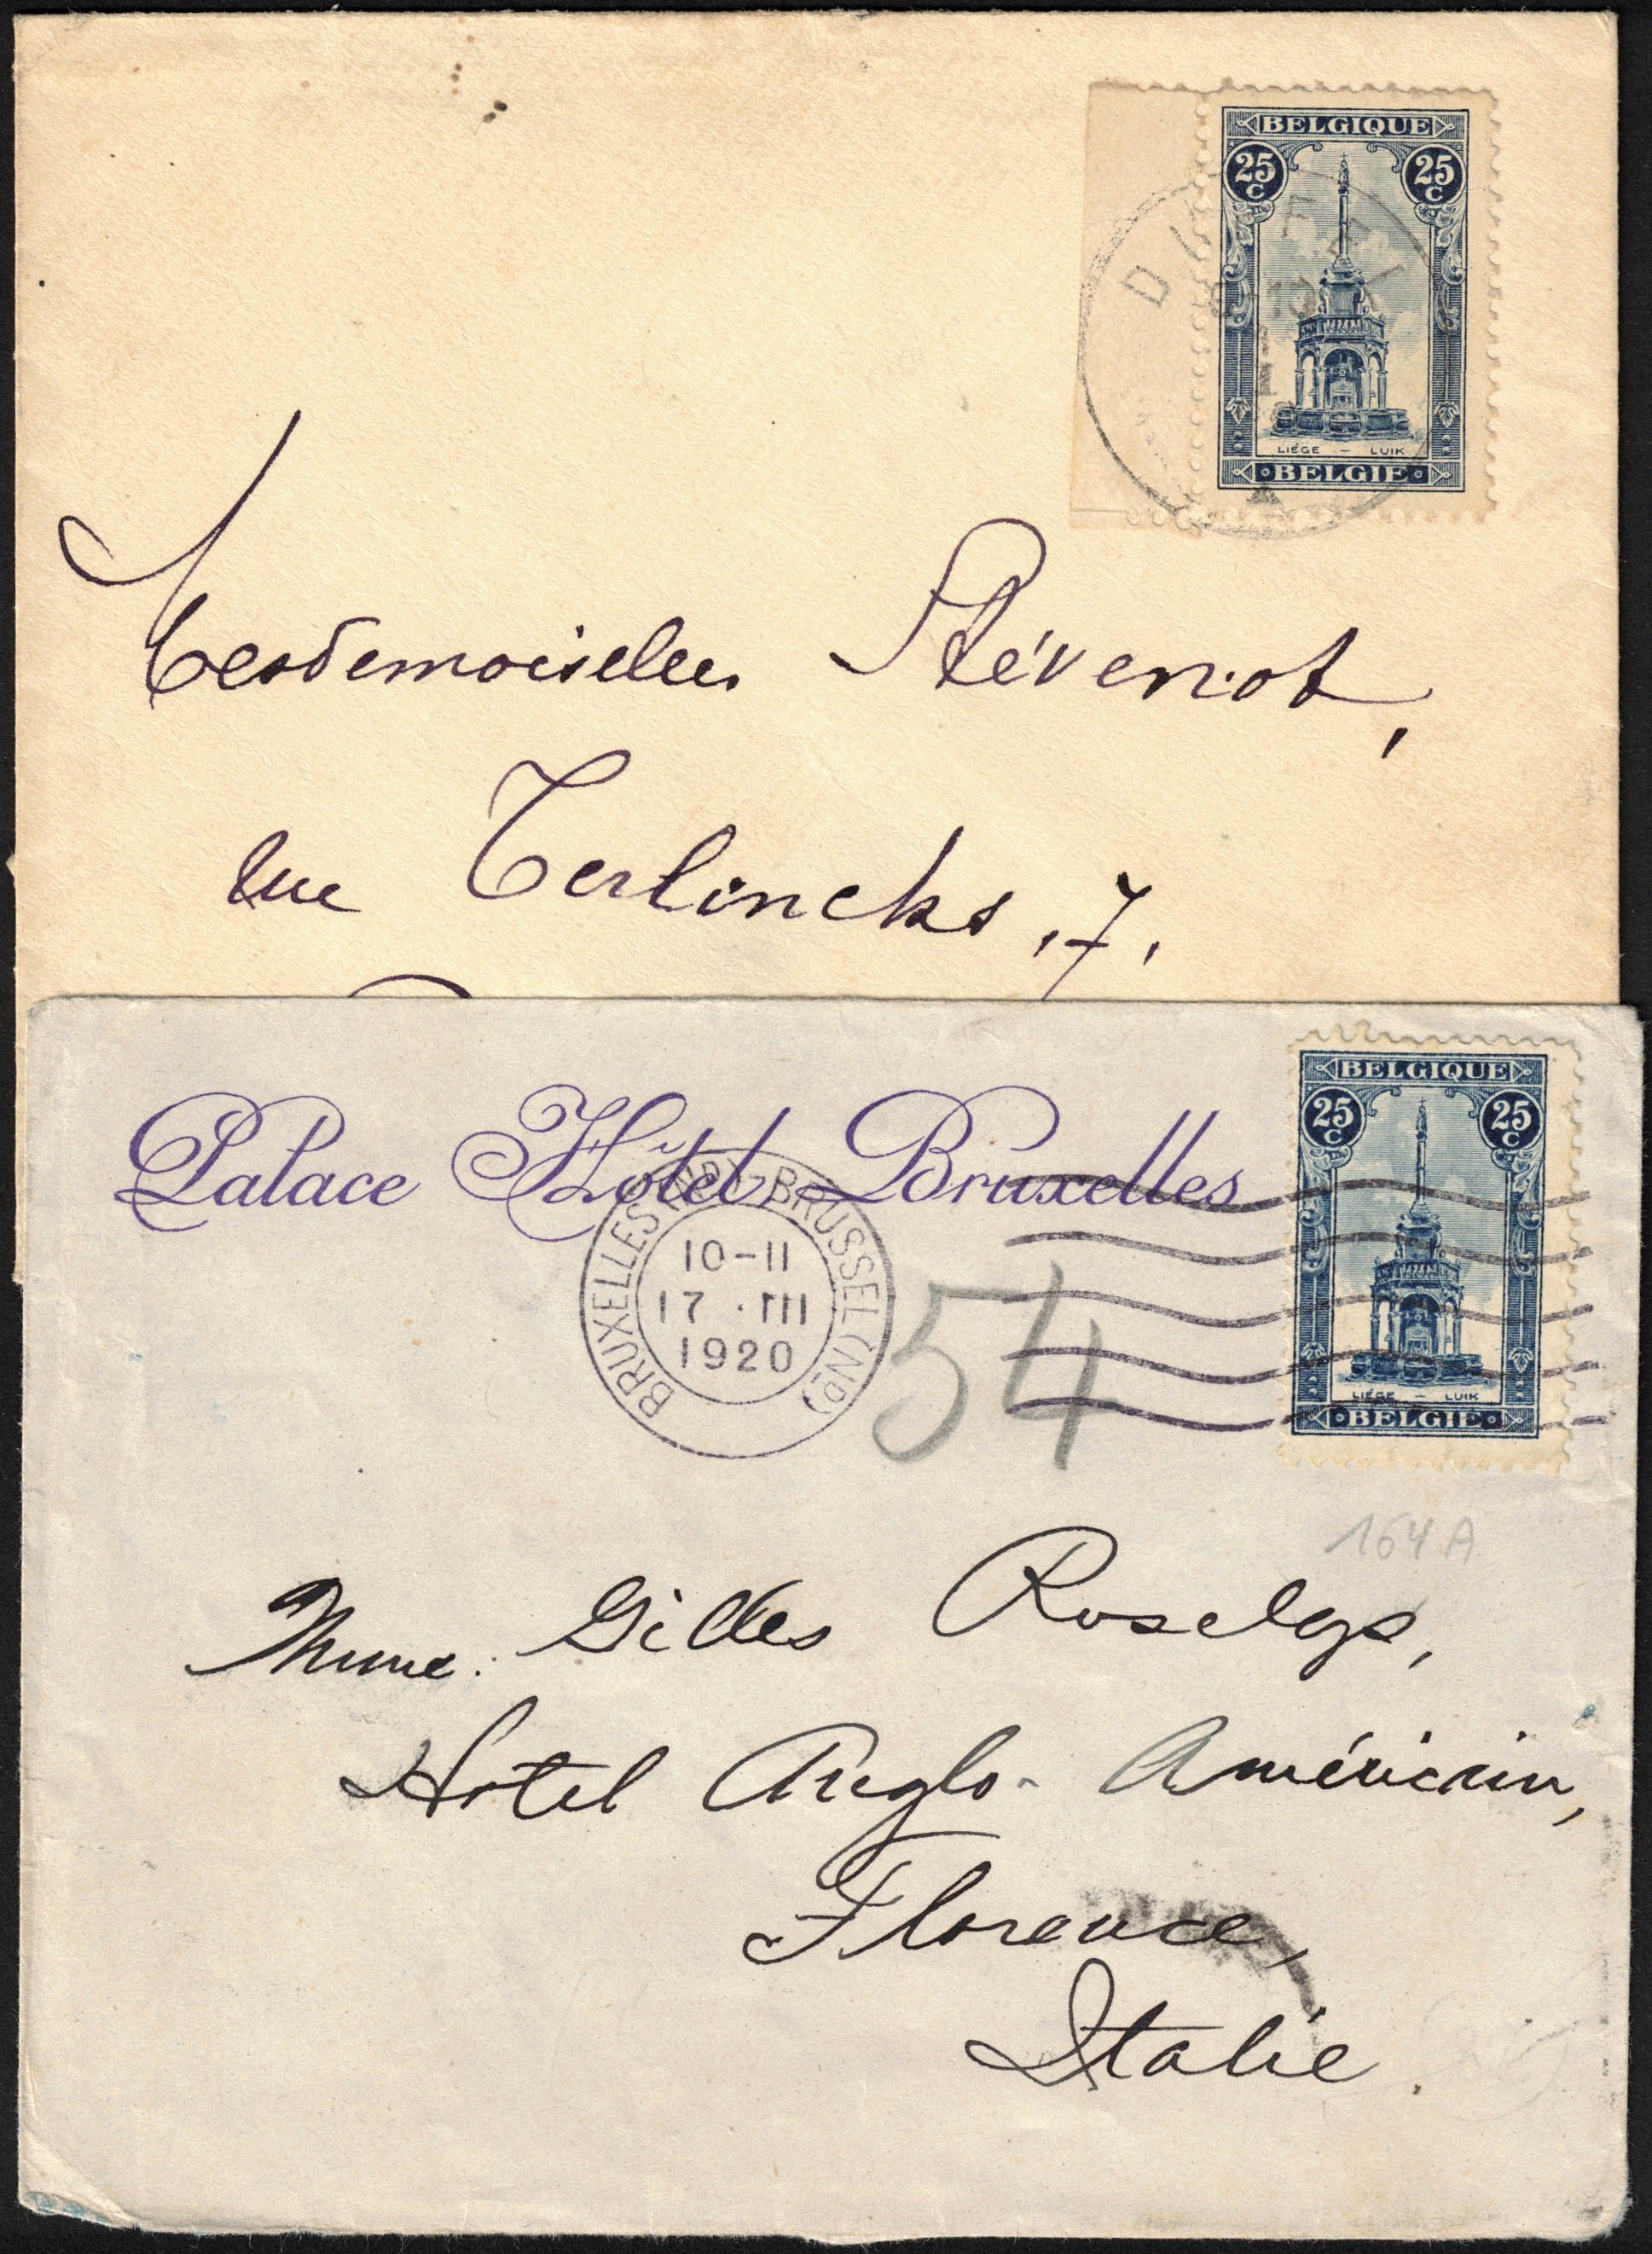 BELGIQUE
25 C 25 C
LIÉGE – LUIK
BELGIE
Mesdemoiselles Stévenot,
rue Terlincks, 7.
Palace Hôtel Bruxelles
BELGIQUE
25 C 25 C
LIÉGE – LUIK
BELGIE
BRUXELLES (NRD)-BRUSSEL (ND)
10-11
17 · III
1920
54
164A
Mme. Gilles
Hotel Anglo-Américain,
Florence,
Italie.